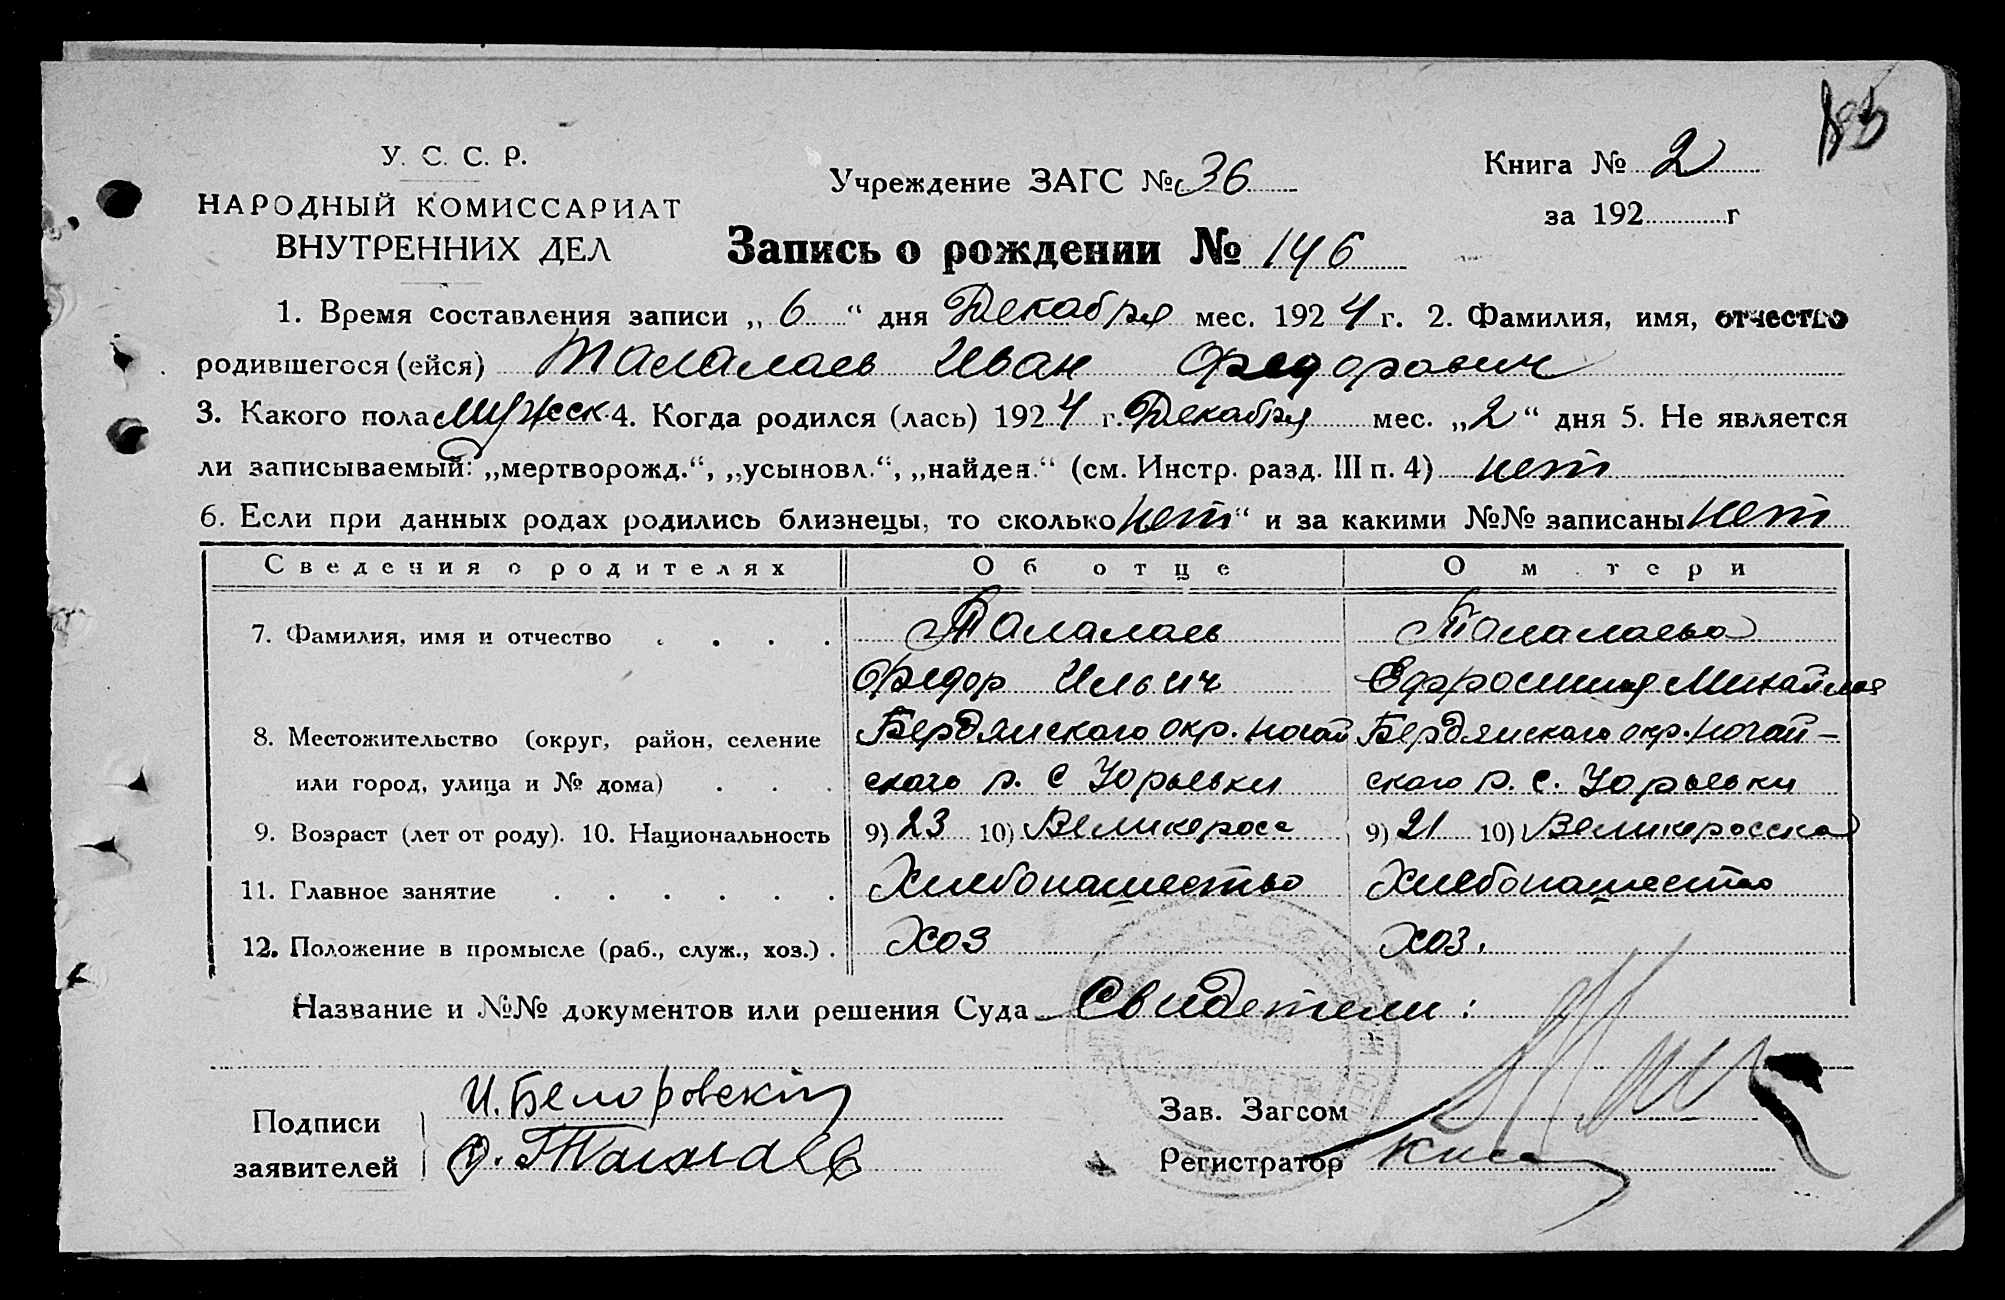 У. С. С. Р.
НАРОДНЫЙ КОМИССАРИАТ
ВНУТРЕННИХ ДЕЛ
Учреждение ЗАГС № 36
Книга № 2
за 192 г
Запись о рождении № 146
1. Время составления записи „ 6 “ дня Декабря мес. 1924 г. 2. Фамилия, имя, отчество
родившегося (ейся) Талалаев Иван Федорович
3. Какого пола Мужеск. 4. Когда родился (лась) 1924 г. Декабря мес. „2“ дня 5. Не является
ли записываемый: „мертворожд.“, „усыновл.“, „найден.“ (см. Инстр. разд. III п. 4) нет
6. Если при данных родах родились близнецы, то сколько нет“ и за какими №№ записаны нет
Сведения о родителях Об отце О м тери
7. Фамилия, имя и отчество . . . . Талалаев Талалаева
Федор Ильич Ефросиния Михайлов
8. Местожительство (округ, район, селение Бердянского окр. Ногай Бердянского окр. Ногай-
или город, улица и № дома) . . . ского р. с Юрьевки ского р. с. Юрьевки
9. Возраст (лет от роду). 10. Национальность 9) 23 10) Великоросс 9) 21 10) Великоросска
11. Главное занятие . . . . . . Хлебопашество Хлебопашество
12. Положение в промысле (раб., служ., хоз.) . Хоз Хоз.
Название и №№ документов или решения Суда Свидетели:
Подписи
заявителей
И. Белоровский
Ф. Талалаев
Зав. Загсом
Регистратор